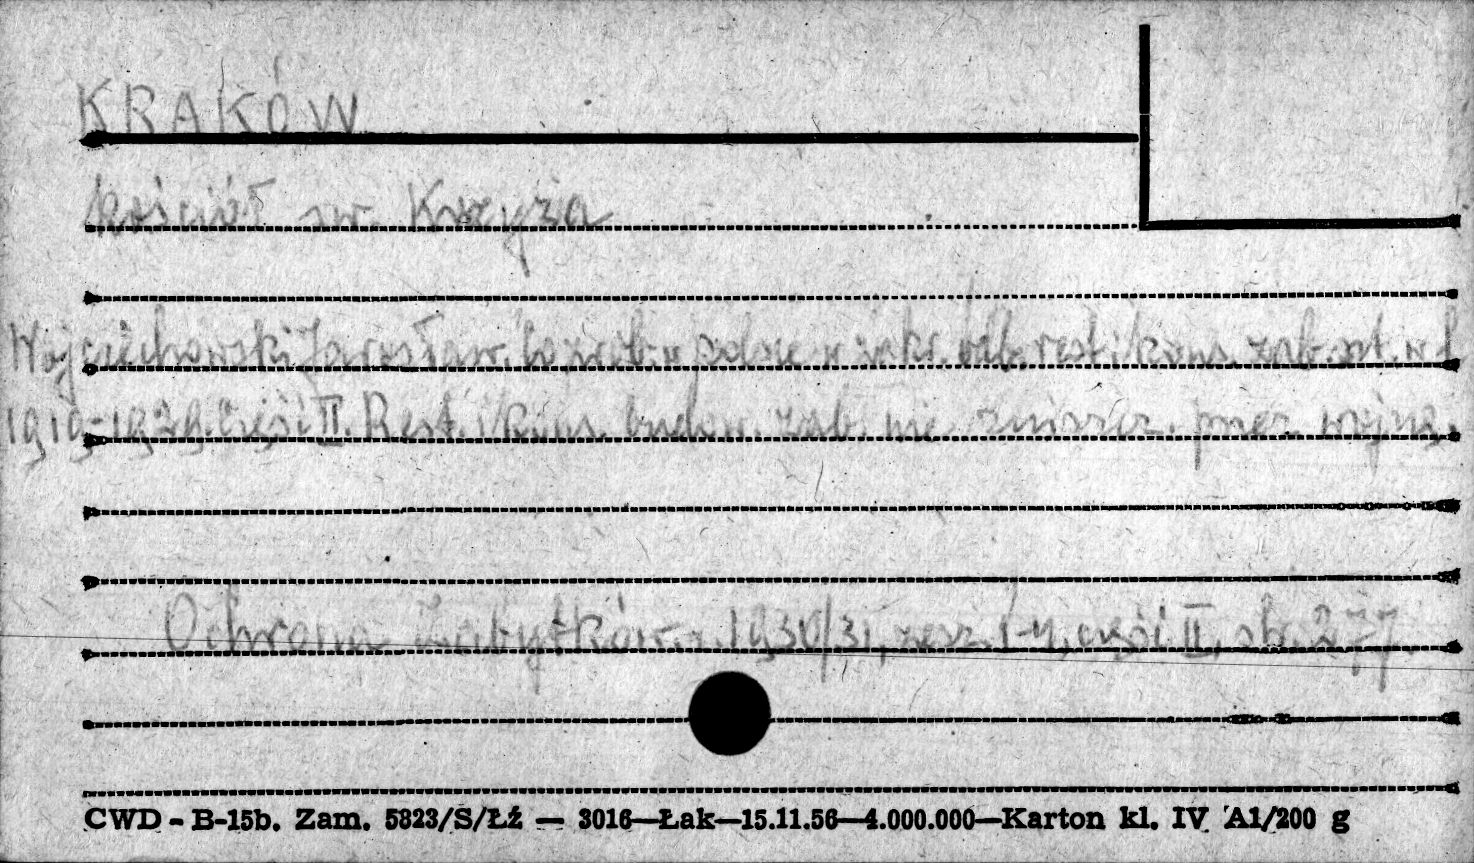 KRAKÓW
kościół św. Krzyża
Wojciechowski Jarosław, w zakr. odb. rest. i kons. zab. w l.
1919-1929. Część II. Rest. i kons. budow. zab. nie zniszcz. przez wojnę.
Ochrona Zabytków, 1930/31, zesz. 1-4, część II, str. 277
CWD - B-15b. Zam. 5823/S/Łź — 3016—Łak—15.11.56—4.000.000—Karton kl. IV A1/200 g